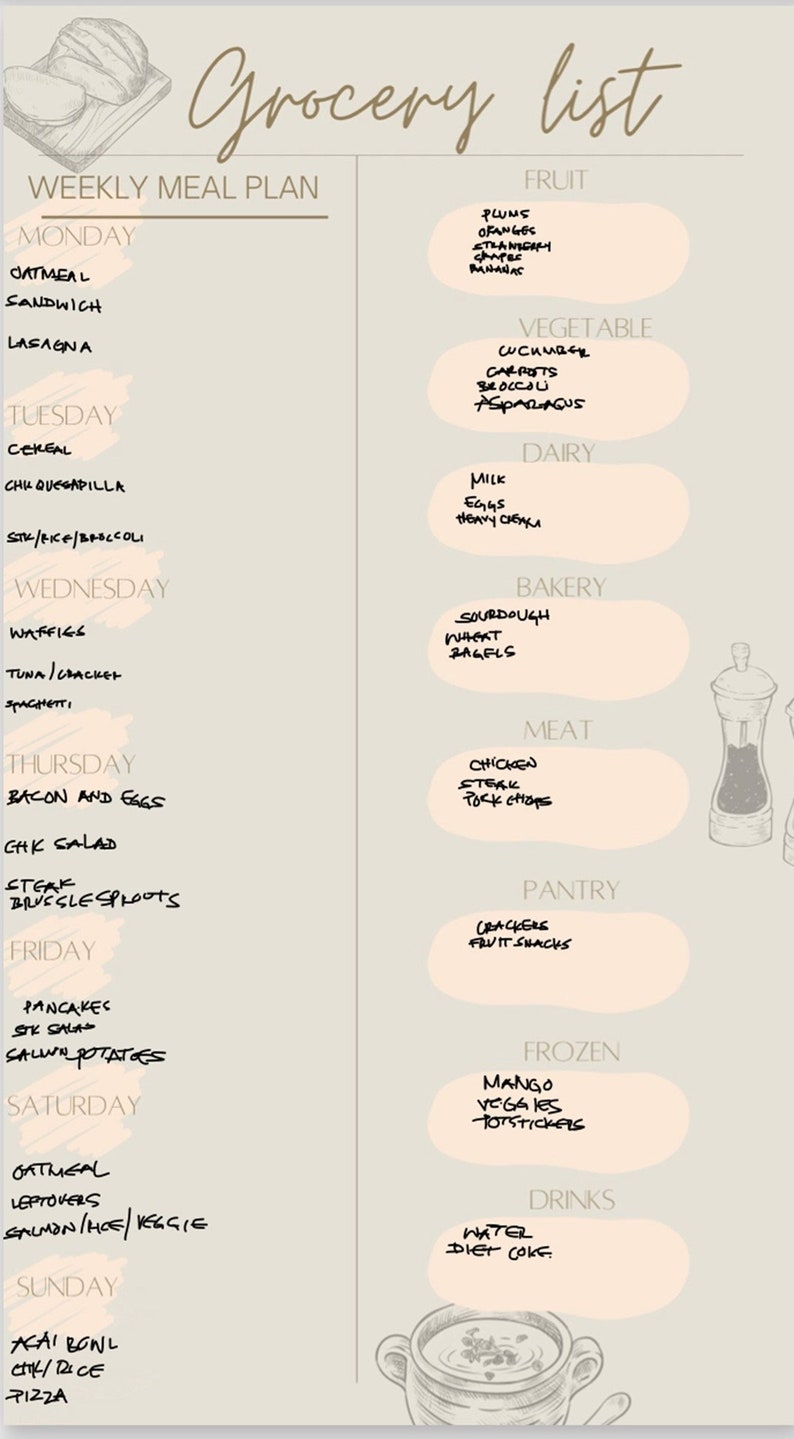 Grocery list
WEEKLY MEAL PLAN
MONDAY
OATMEAL
SANDWICH
LASAGNA
TUESDAY
CEREAL
CHK QUESADILLA
STK/RICE/BROCCOLI
WEDNESDAY
WAFFLES
TUNA/CRACKER
SPAGHETTI
THURSDAY
BACON AND EGGS
CHK SALAD
STEAK
BRUSSLE SPROOTS
FRIDAY
PANCAKES
STK SALAD
SALMON POTATOES
SATURDAY
OATMEAL
LEFTOVERS
SALMON/RICE/VEGGIE
SUNDAY
ACAI BOWL
CHK/RICE
PIZZA
FRUIT
PLUMS
ORANGES
STRAWBERRY
GRAPES
BANANAS
VEGETABLE
CUCUMBER
CARROTS
BROCCOLI
ASPARAGUS
DAIRY
MILK
EGGS
HEAVY CREAM
BAKERY
SOURDOUGH
WHEAT
BAGELS
MEAT
CHICKEN
STEAK
PORK CHOPS
PANTRY
CRACKERS
FRUIT SNACKS
FROZEN
MANGO
VEGGIES
POTSTICKERS
DRINKS
WATER
DIET COKE